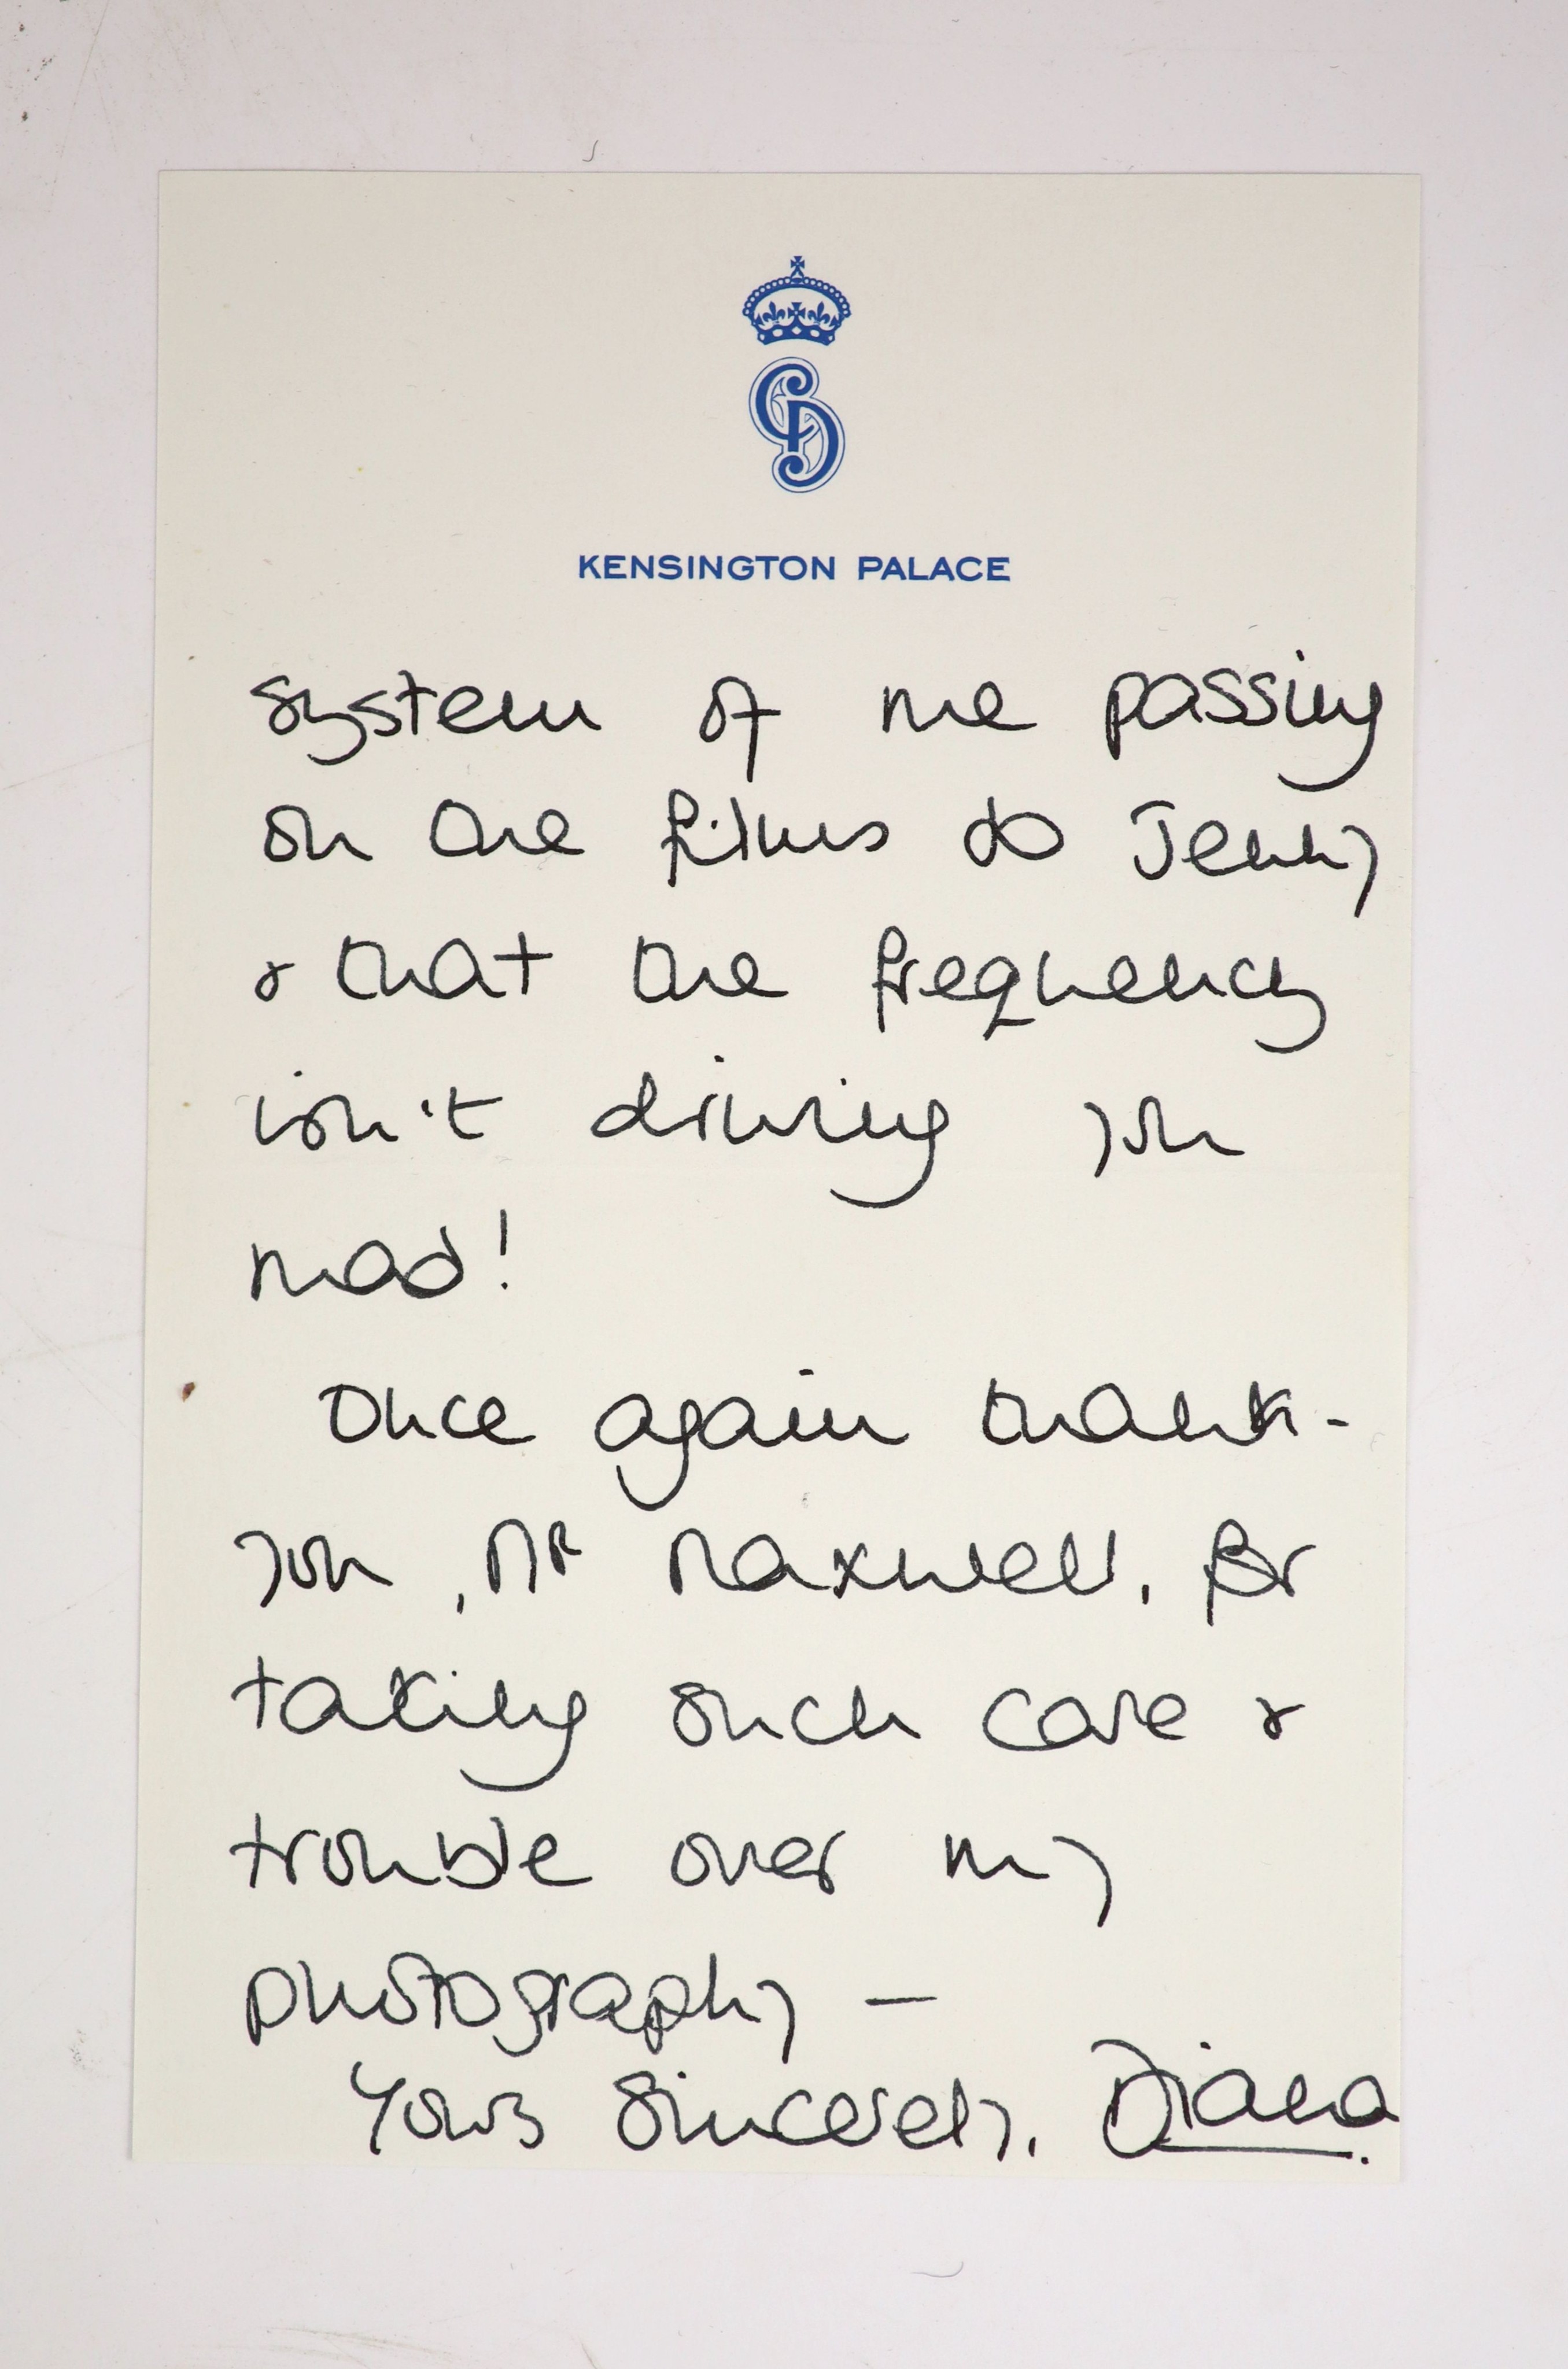 CD
KENSINGTON PALACE
system of me passing
on the films to Jenny
& that the frequency
isn't driving you
mad!
Once again thank-
you, Mr Maxwell, for
taking such care &
trouble over my
photography —
Yours sincerely, Diana.